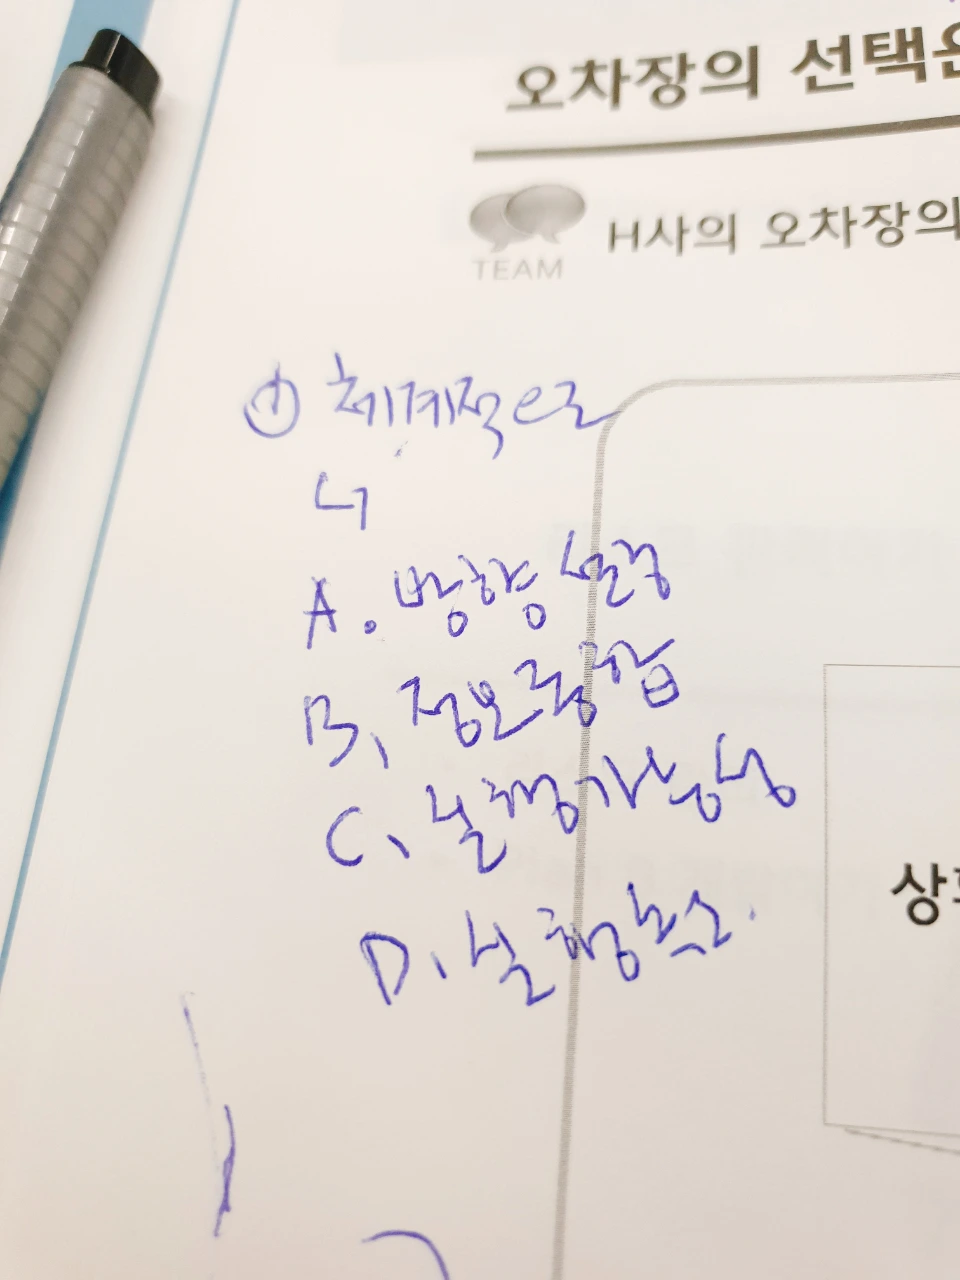 오차장의 선택은
TEAM
H사의 오차장의
① 체계적으로
ㄴ
A. 방향 설정
B. 정보종합
C. 실행가능성
D. 실행
상황